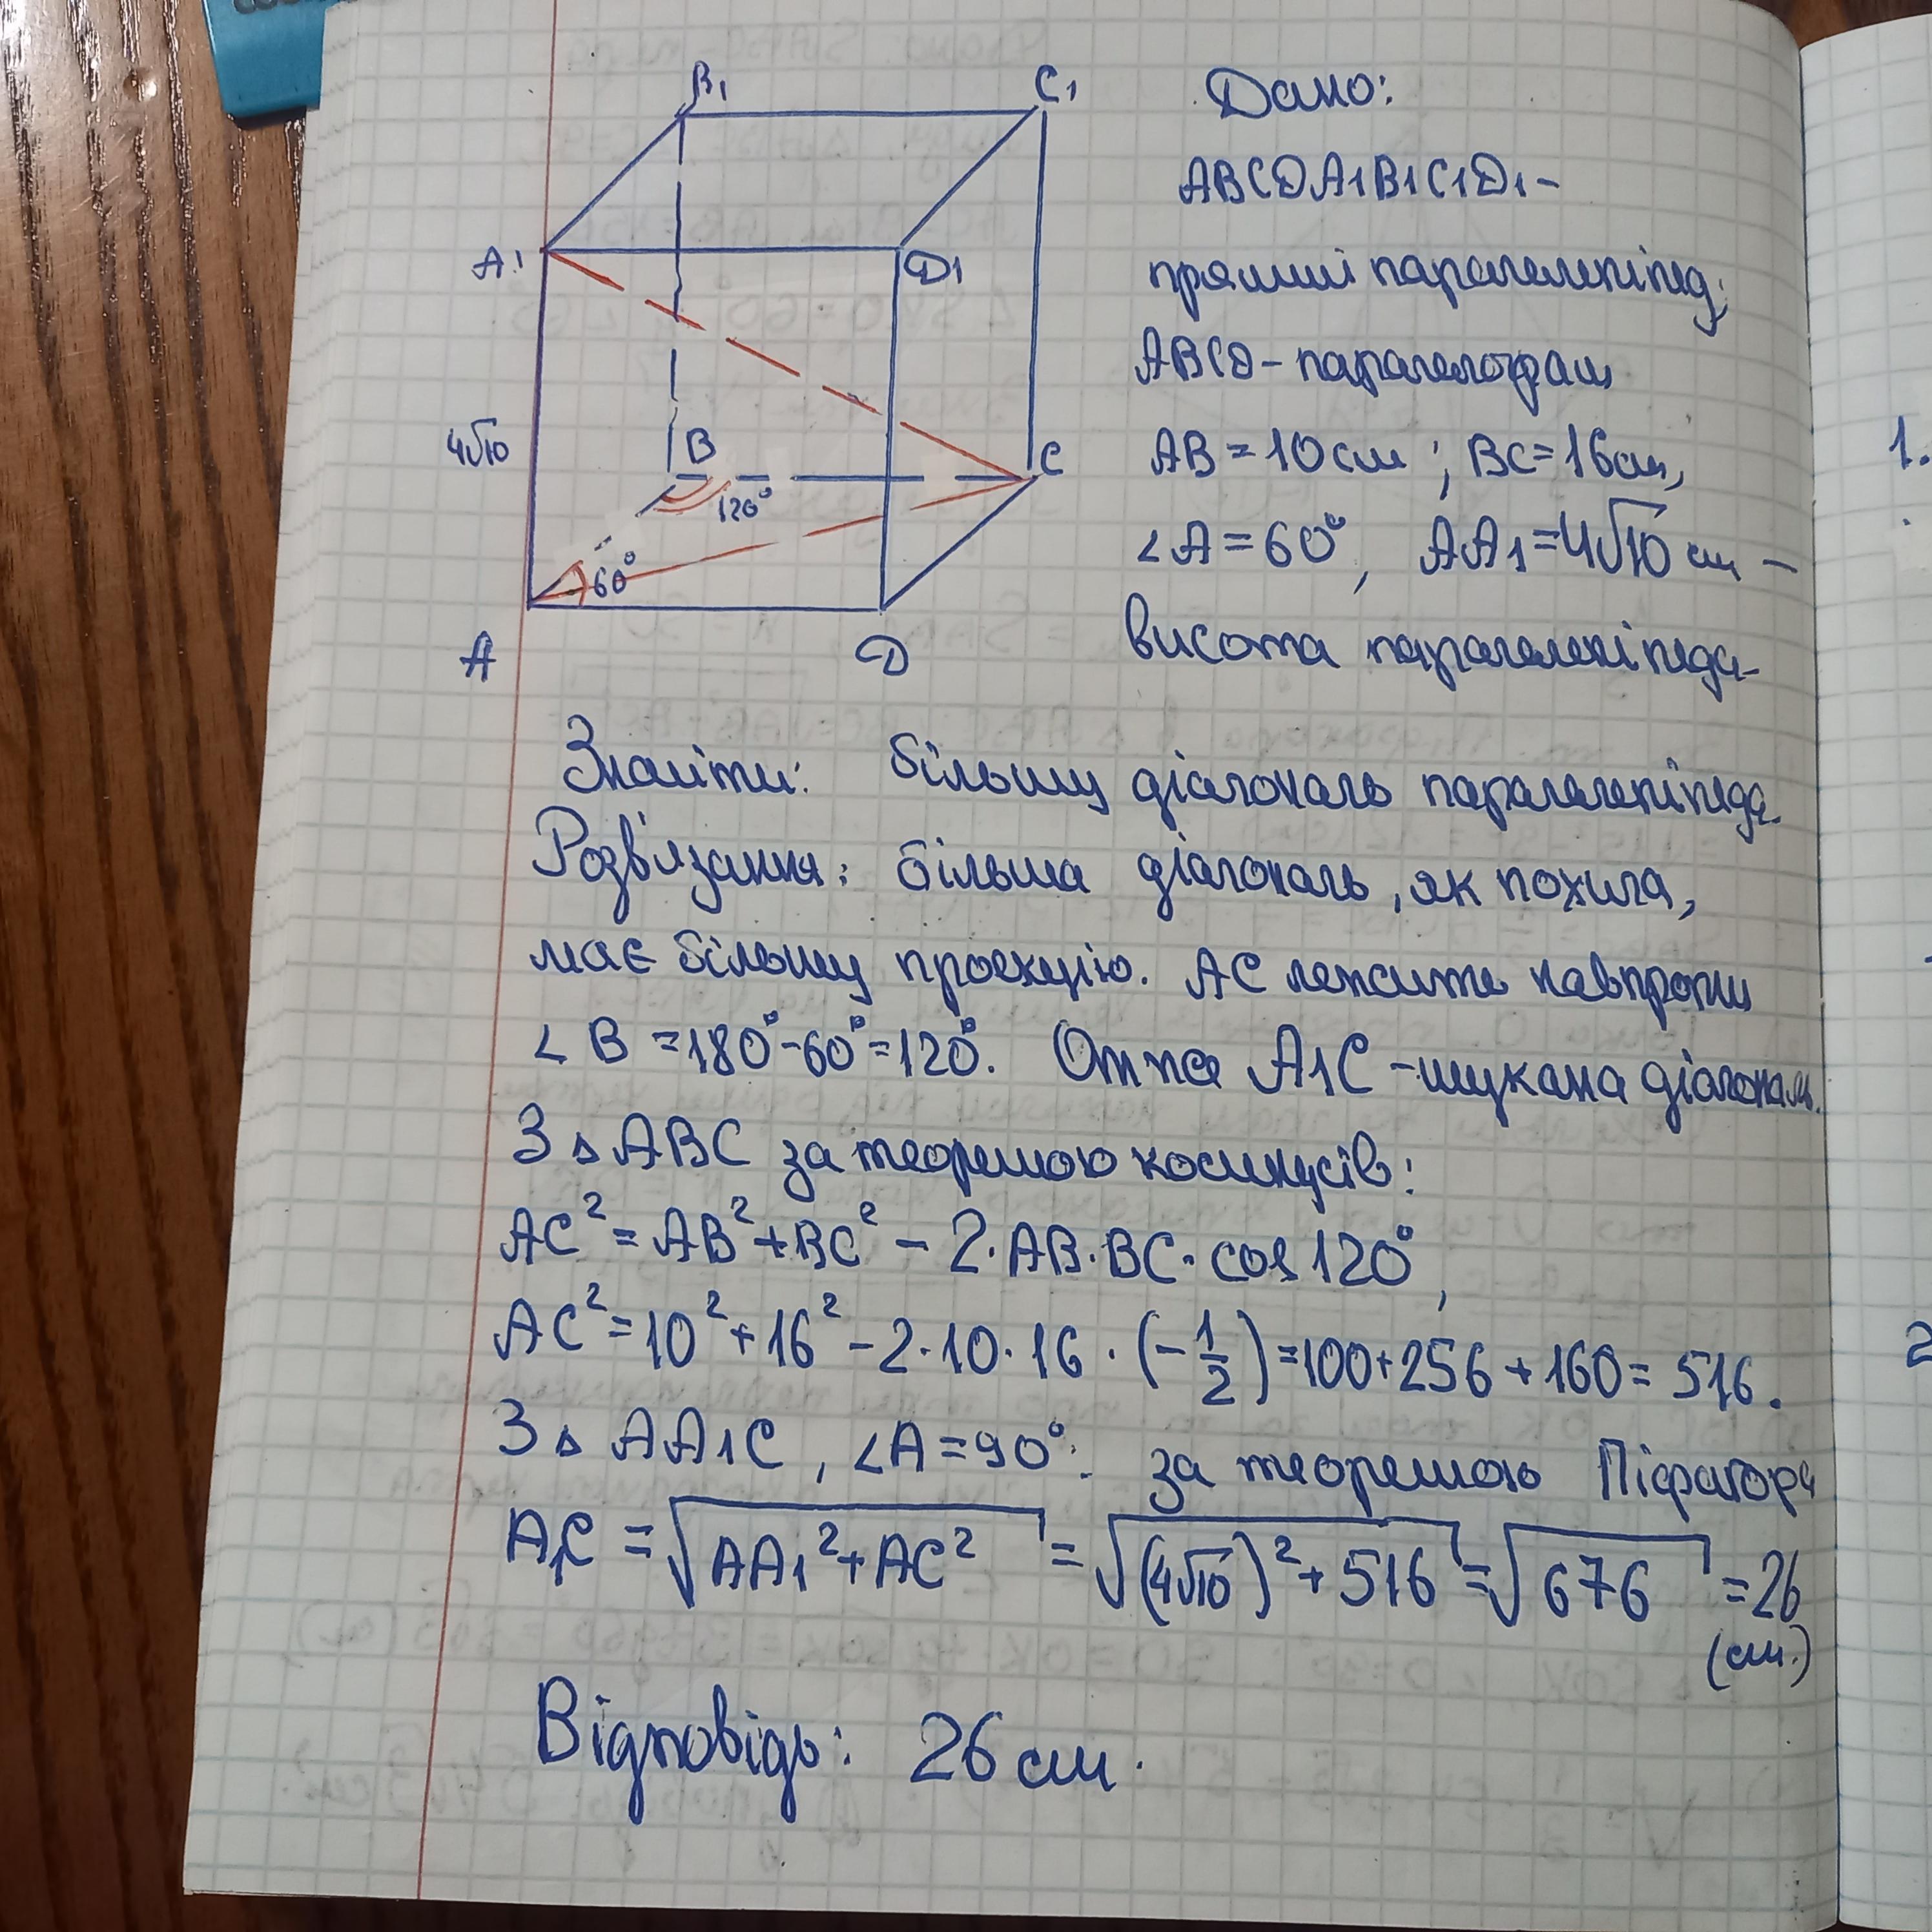 B₁
C₁
Дано:
ABCDA₁B₁C₁D₁ –
прямий паралелепіпед;
A₁
D₁
ABCD – паралелограм,
4√10
B
C
AB = 10 см; BC = 16 см,
120°
60°
∠A = 60°, AA₁ = 4√10 см –
висота паралелепіпеда.
A
D
Знайти: більшу діагональ паралелепіпеда.
Розв'язання: більша діагональ, як похила,
має більшу проекцію. AC лежить навпроти
∠B = 180° - 60° = 120°. Отже A₁C – шукана діагональ.
З △ABC за теоремою косинусів:
AC² = AB² + BC² – 2·AB·BC·cos 120°,
AC² = 10² + 16² – 2·10·16·(-1/2) = 100 + 256 + 160 = 516.
З △AA₁C, ∠A = 90°: за теоремою Піфагора
A₁C = √(AA₁² + AC²) = √((4√10)² + 516) = √676 = 26
(см.)
Відповідь: 26 см.
1.
2